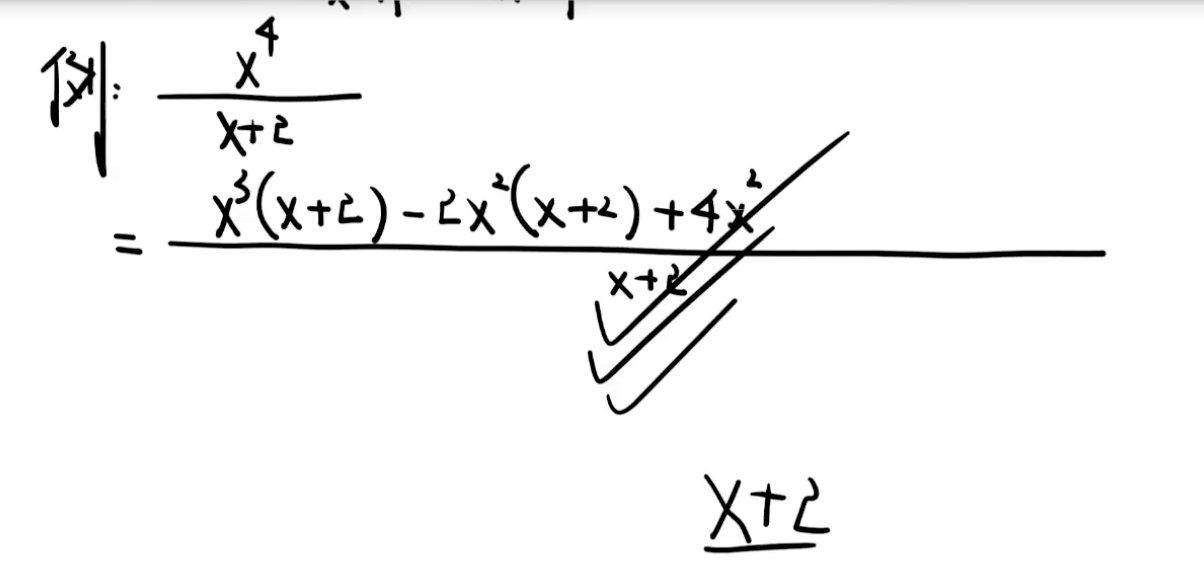 例: x^4
x+2
= x^3(x+2) - 2x^2(x+2) + 4x^2
x+2
x+2